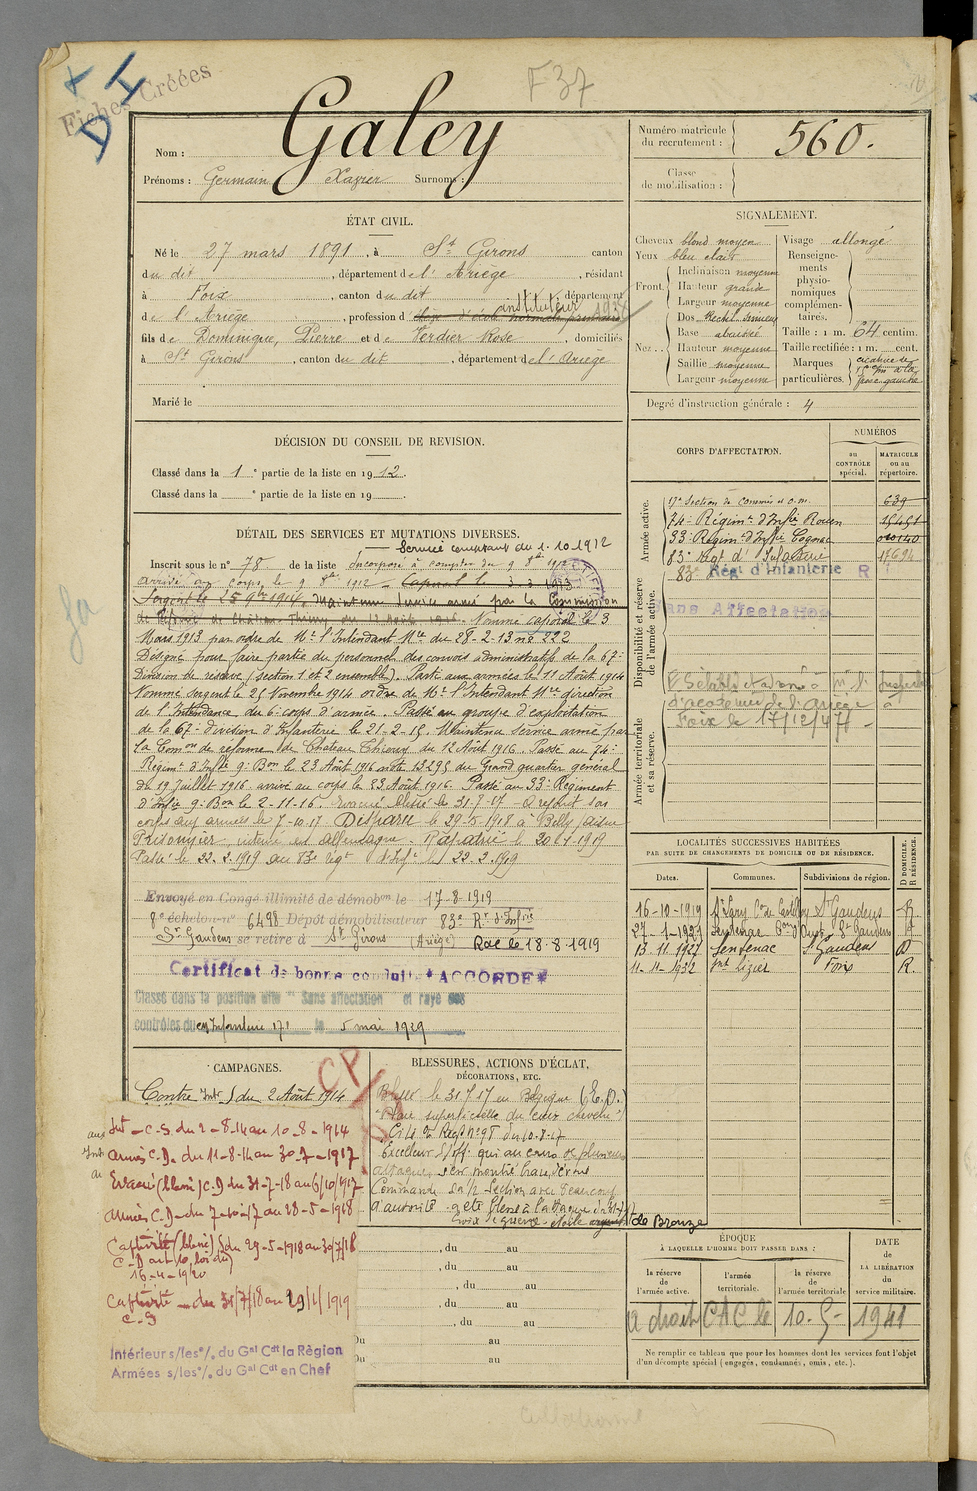 Fiches Créées
D I
F 37
Nom : Galey
Prénoms : Germain Xavier Surnoms :
Numéro matricule du recrutement : 560.
Classe de mobilisation :
ÉTAT CIVIL.
Né le 27 mars 1891, à St Girons canton
du dit, département de l'Ariège, résidant
à Foix, canton du dit, département
de l'Ariège, profession d instituteur
fils de Dominique, Pierre et de Verdier Rose, domiciliés
à St Girons, canton du dit, département de l'Ariège
Marié le
SIGNALEMENT.
Cheveux blond moyen
Yeux bleu clair
Front. Inclinaison moyenne
Hauteur grande
Largeur moyenne
Nez. Dos Rectil. sinueux
Base abaissée
Hauteur moyenne
Saillie moyenne
Largeur moyenne
Visage allongé
Renseignements physionomiques complémentaires.
Taille : 1 m. 64 centim.
Taille rectifiée : 1 m. cent.
Marques particulières. cicatrice de à la face gauche
Degré d'instruction générale : 4
DÉCISION DU CONSEIL DE REVISION.
Classé dans la 1e partie de la liste en 1912.
Classé dans la e partie de la liste en 19
CORPS D'AFFECTATION.
NUMÉROS
au CONTRÔLE spécial.
MATRICULE ou au répertoire.
Armée active.
17e Section de commis et o.m. 639
74e Régimt d'Infie Rouen 15451
33e Régimt d'Infie Cognac
83e Régt d'Infanterie 17694
83e Régt d'Infanterie R
Disponibilité et réserve de l'armée active.
Sans Affectation
d'académie de l'Ariège à
Foix le 17/12/47
Armée territoriale et sa réserve.
DÉTAIL DES SERVICES ET MUTATIONS DIVERSES.
Service comptant du 1.10.1912
Inscrit sous le no 78 de la liste Incorporé à compter du 9 8bre 1912
arrivé au corps le 9 8bre 1912 Caporal le 3.3.1913
Sergent le 25 9bre 1914. Maintenu Service armé par la Commission
de Réforme de Château-Thierry du 12 Août 1916. Nommé caporal le 3
Mars 1913 par ordre de Mr l'Intendant Mre du 28-2-13 no 222
Désigné pour faire partie du personnel des convois administratifs de la 67e
Division de réserve (section 1 et 2 ensemble). Parti aux armées le 11 Août 1914
Nommé Sergent le 25 Novembre 1914 ordre de Mr l'Intendant Mre direction
de l'Intendance du 6e corps d'armée. Passé au groupe d'exploitation
de la 67e division d'Infanterie le 21-2-15. Maintenu service armé par
la Comon de réforme de Château Thierry du 12 Août 1916. Passé au 74e
Régimt d'Infie 9e Bon le 23 Août 1916 note 13295 du Grand quartier général
du 19 Juillet 1916 arrivé au corps le 23 Août 1916. Passé au 33e Régiment
d'Infie 9e Bon le 2-11-16. Evacué blessé le 31-7-17 - A rejoint son
corps aux armées le 7-10-17 Disparu le 29-5-1918 à Billy / aisne
Prisonnier, interné en Allemagne. Rapatrié le 20-1-1919
Passé le 22.2.1919 au 83e régt d'Infie le 22.2.1919
Envoyé en Congé illimité de démobon le 17-8-1919
8e échelon no 6498 Dépôt démobilisateur 83e Rt d'Infie
St Gaudens se retire à St Girons (Ariège) Rac le 18-8-1919
Certificat de bonne conduite *ACCORDÉ*
Classé dans la position dite "Sans affectation" et rayé des
contrôles du cm Infanterie 171 le 5 mai 1929
LOCALITÉS SUCCESSIVES HABITÉES
PAR SUITE DE CHANGEMENTS DE DOMICILE OU DE RÉSIDENCE.
Dates. Communes. Subdivisions de région. D DOMICILE. R RÉSIDENCE.
16-10-1919 St Lary Con de Castillon St Gaudens R.
27-1-1921 Sentenac Con d'Oust St Gaudens
13.11.1927 Sentenac St Gaudens D
11-11-1932 St Lizier Foix R.
CAMPAGNES.
Contre Intr du 2 Août 1914
CP
Int - C.S. du 2-8-14 au 10-8-1914
Armées C.D. du 11-8-14 au 30-7-1917
Evacué (blessé) C.D du 31-7-18 au 6/10/1917
Armées C.D - du 7-10-17 au 28-5-1918
Captivité (blessé) du 29-5-1918 au 30/7/18
C-D art 10 loi du
16-4-1920
Captivité - du 31/7/18 au 29/1/1919
C.S
Intérieur s/les o/. du Gal Cdt la Région
Armées s/les o/. du Gal Cdt en Chef
BLESSURES, ACTIONS D'ÉCLAT,
DÉCORATIONS, ETC.
Blessé le 31 7 17 en Belgique (E.O.)
"Plaie superficielle du cuir chevelu"
Cité O. Regt no 98 du 10.8.17
Excellent s/off. qui au cours de plusieurs
attaques s'est montré brave, très
Commande sa 1/2 Section avec beaucoup
d'autorité - a été blessé à l'attaque
Croix de guerre - étoile argent de Bronze
, du au
, du au
, du au
, du au
, du au
Du au
Du au
ÉPOQUE
À LAQUELLE L'HOMME DOIT PASSER DANS :
la réserve de l'armée active.
l'armée territoriale.
la réserve de l'armée territoriale
DATE de LA LIBÉRATION du service militaire.
a droit CAC le 10-5-1941
Ne remplir ce tableau que pour les hommes dont les services font l'objet
d'un décompte spécial (engagés, condamnés, omis, etc.).